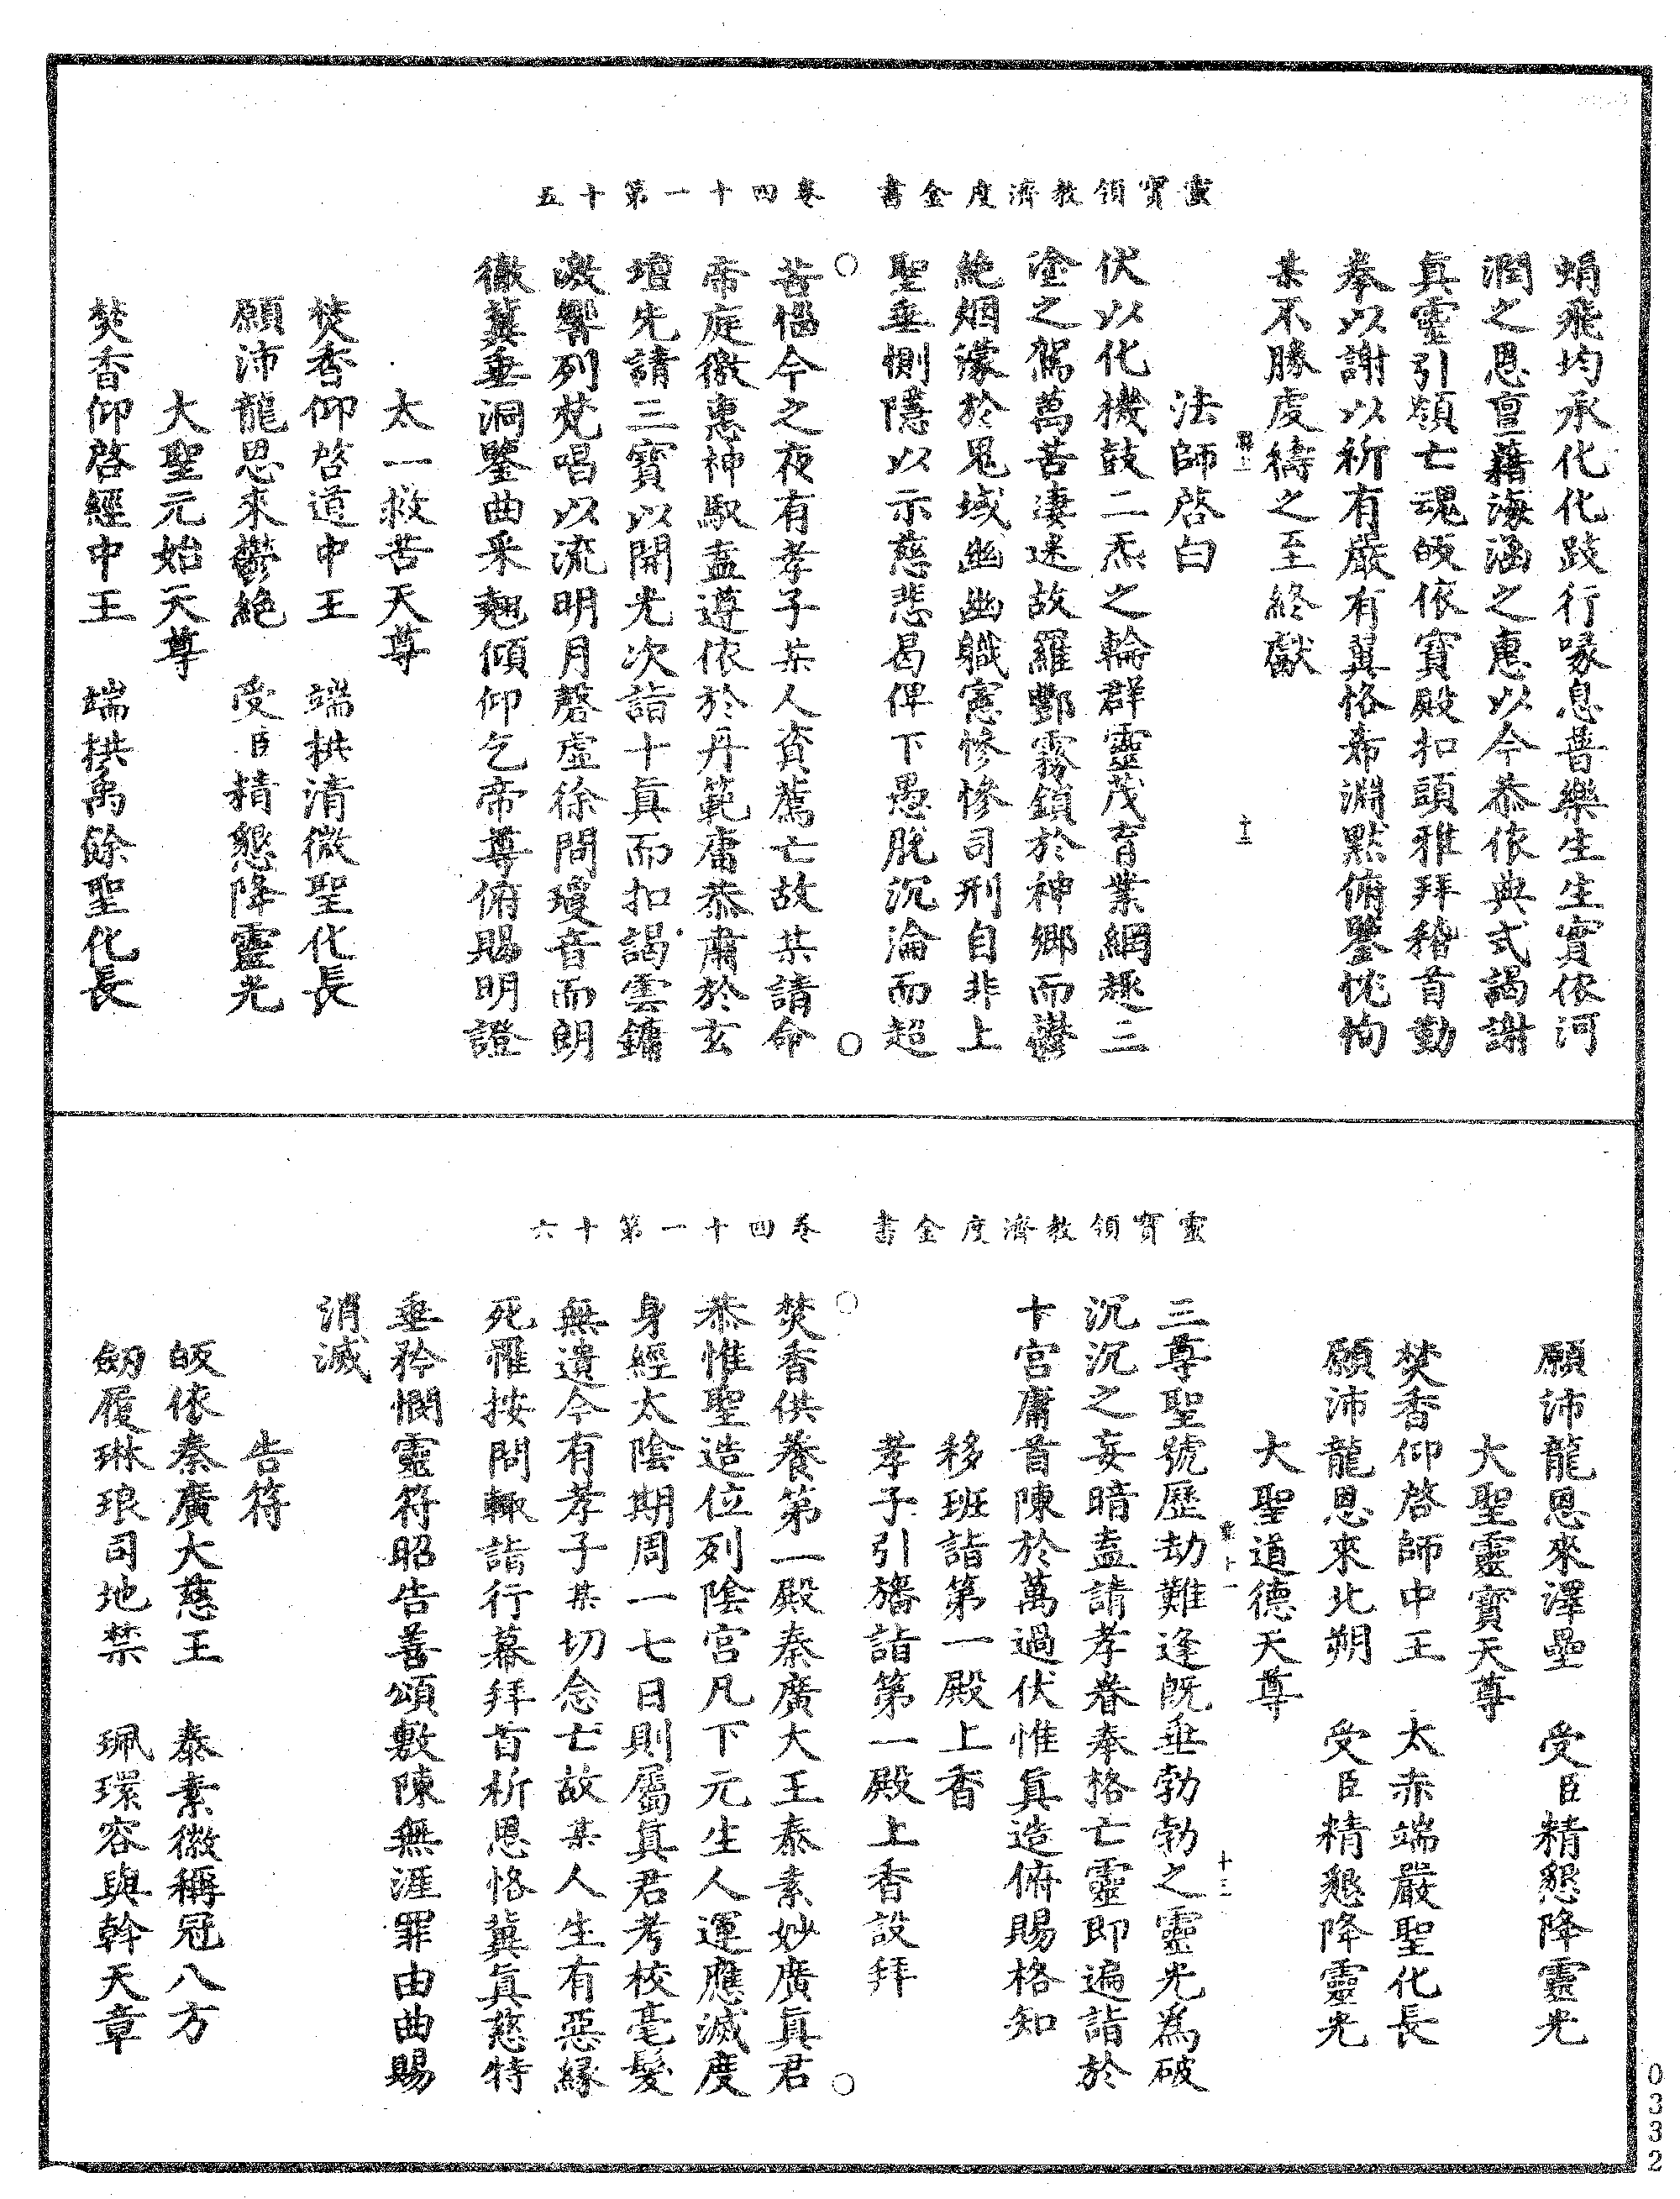 靈寶領教濟度金書　卷四十一第十五
蜎飛均承化化跂行喙息普樂生生實依河
潤之恩亶藉海涵之惠以今恭依典式謁謝
眞靈引領亡魂皈依寶殿扣頭雅拜稽首勤
奉以謝以祈有嚴有翼恪希淵默俯鑒忱恂
某不勝虔禱之至終獻
十二
法師啓白
伏以化機鼓二炁之輪群靈茂育業網趣三
塗之駕萬苦淒迷故羅酆霧鎖於神鄉而鬱
絶烟濛於鬼域幽幽職憲慘慘司刑自非上
聖垂惻隱以示慈悲曷俾下愚脫沉淪而超
苦惱今之夜有孝子某人資薦亡故某請命
帝庭徼惠神馭盍遵依於丹範庸恭肅於玄
壇先請三寶以開光次詣十眞而扣謁雲鏞
激響列梵唱以流明月磬虛徐問瓊音而朗
徹冀垂洞鑒曲釆翹傾仰乞帝尊俯賜明證
太一救苦天尊
焚香仰啓道中王　端拱清微聖化長
願沛龍恩來鬱絕　受臣精懇降靈光
大聖元始天尊
焚香仰啓經中王　端拱禹餘聖化長
靈寶領教濟度金書　卷四十一第十六
願沛龍恩來澤壘　受臣精懇降靈光
大聖靈寶天尊
焚香仰啓師中王　太赤端嚴聖化長
願沛龍恩來北朔　受臣精懇降靈光
大聖道德天尊
十三
三尊聖號歷劫難逢旣垂勃勃之靈光爲破
沉沉之妄暗盍請孝眷奉格亡靈即遍詣於
十宮庸首陳於萬過伏惟眞造俯賜格知
移班詣第一殿上香
孝子引旛詣第一殿上香設拜
焚香供養第一殿秦廣大王泰素妙廣眞君
恭惟聖造位列陰宮凡下元生人運應滅度
身經太陰期周一七日則屬眞君考校毫髮
無遺今有孝子某切念亡故某人生有惡緣
死罹按問輒詣行幕拜首析恩恪冀眞慈特
垂矜憫靈符昭告善頌敷陳無涯罪由曲賜
消滅
告符
皈依秦廣大慈王　泰素徽稱冠八方
劒履琳琅司地禁　珮環容與幹天章
0332